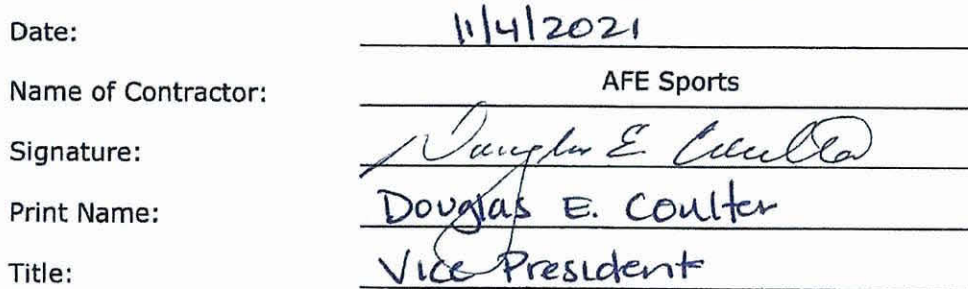 Date: 11/4/2021
Name of Contractor: AFE Sports
Signature: Douglas E. Coulter
Print Name: Douglas E. Coulter
Title: Vice President